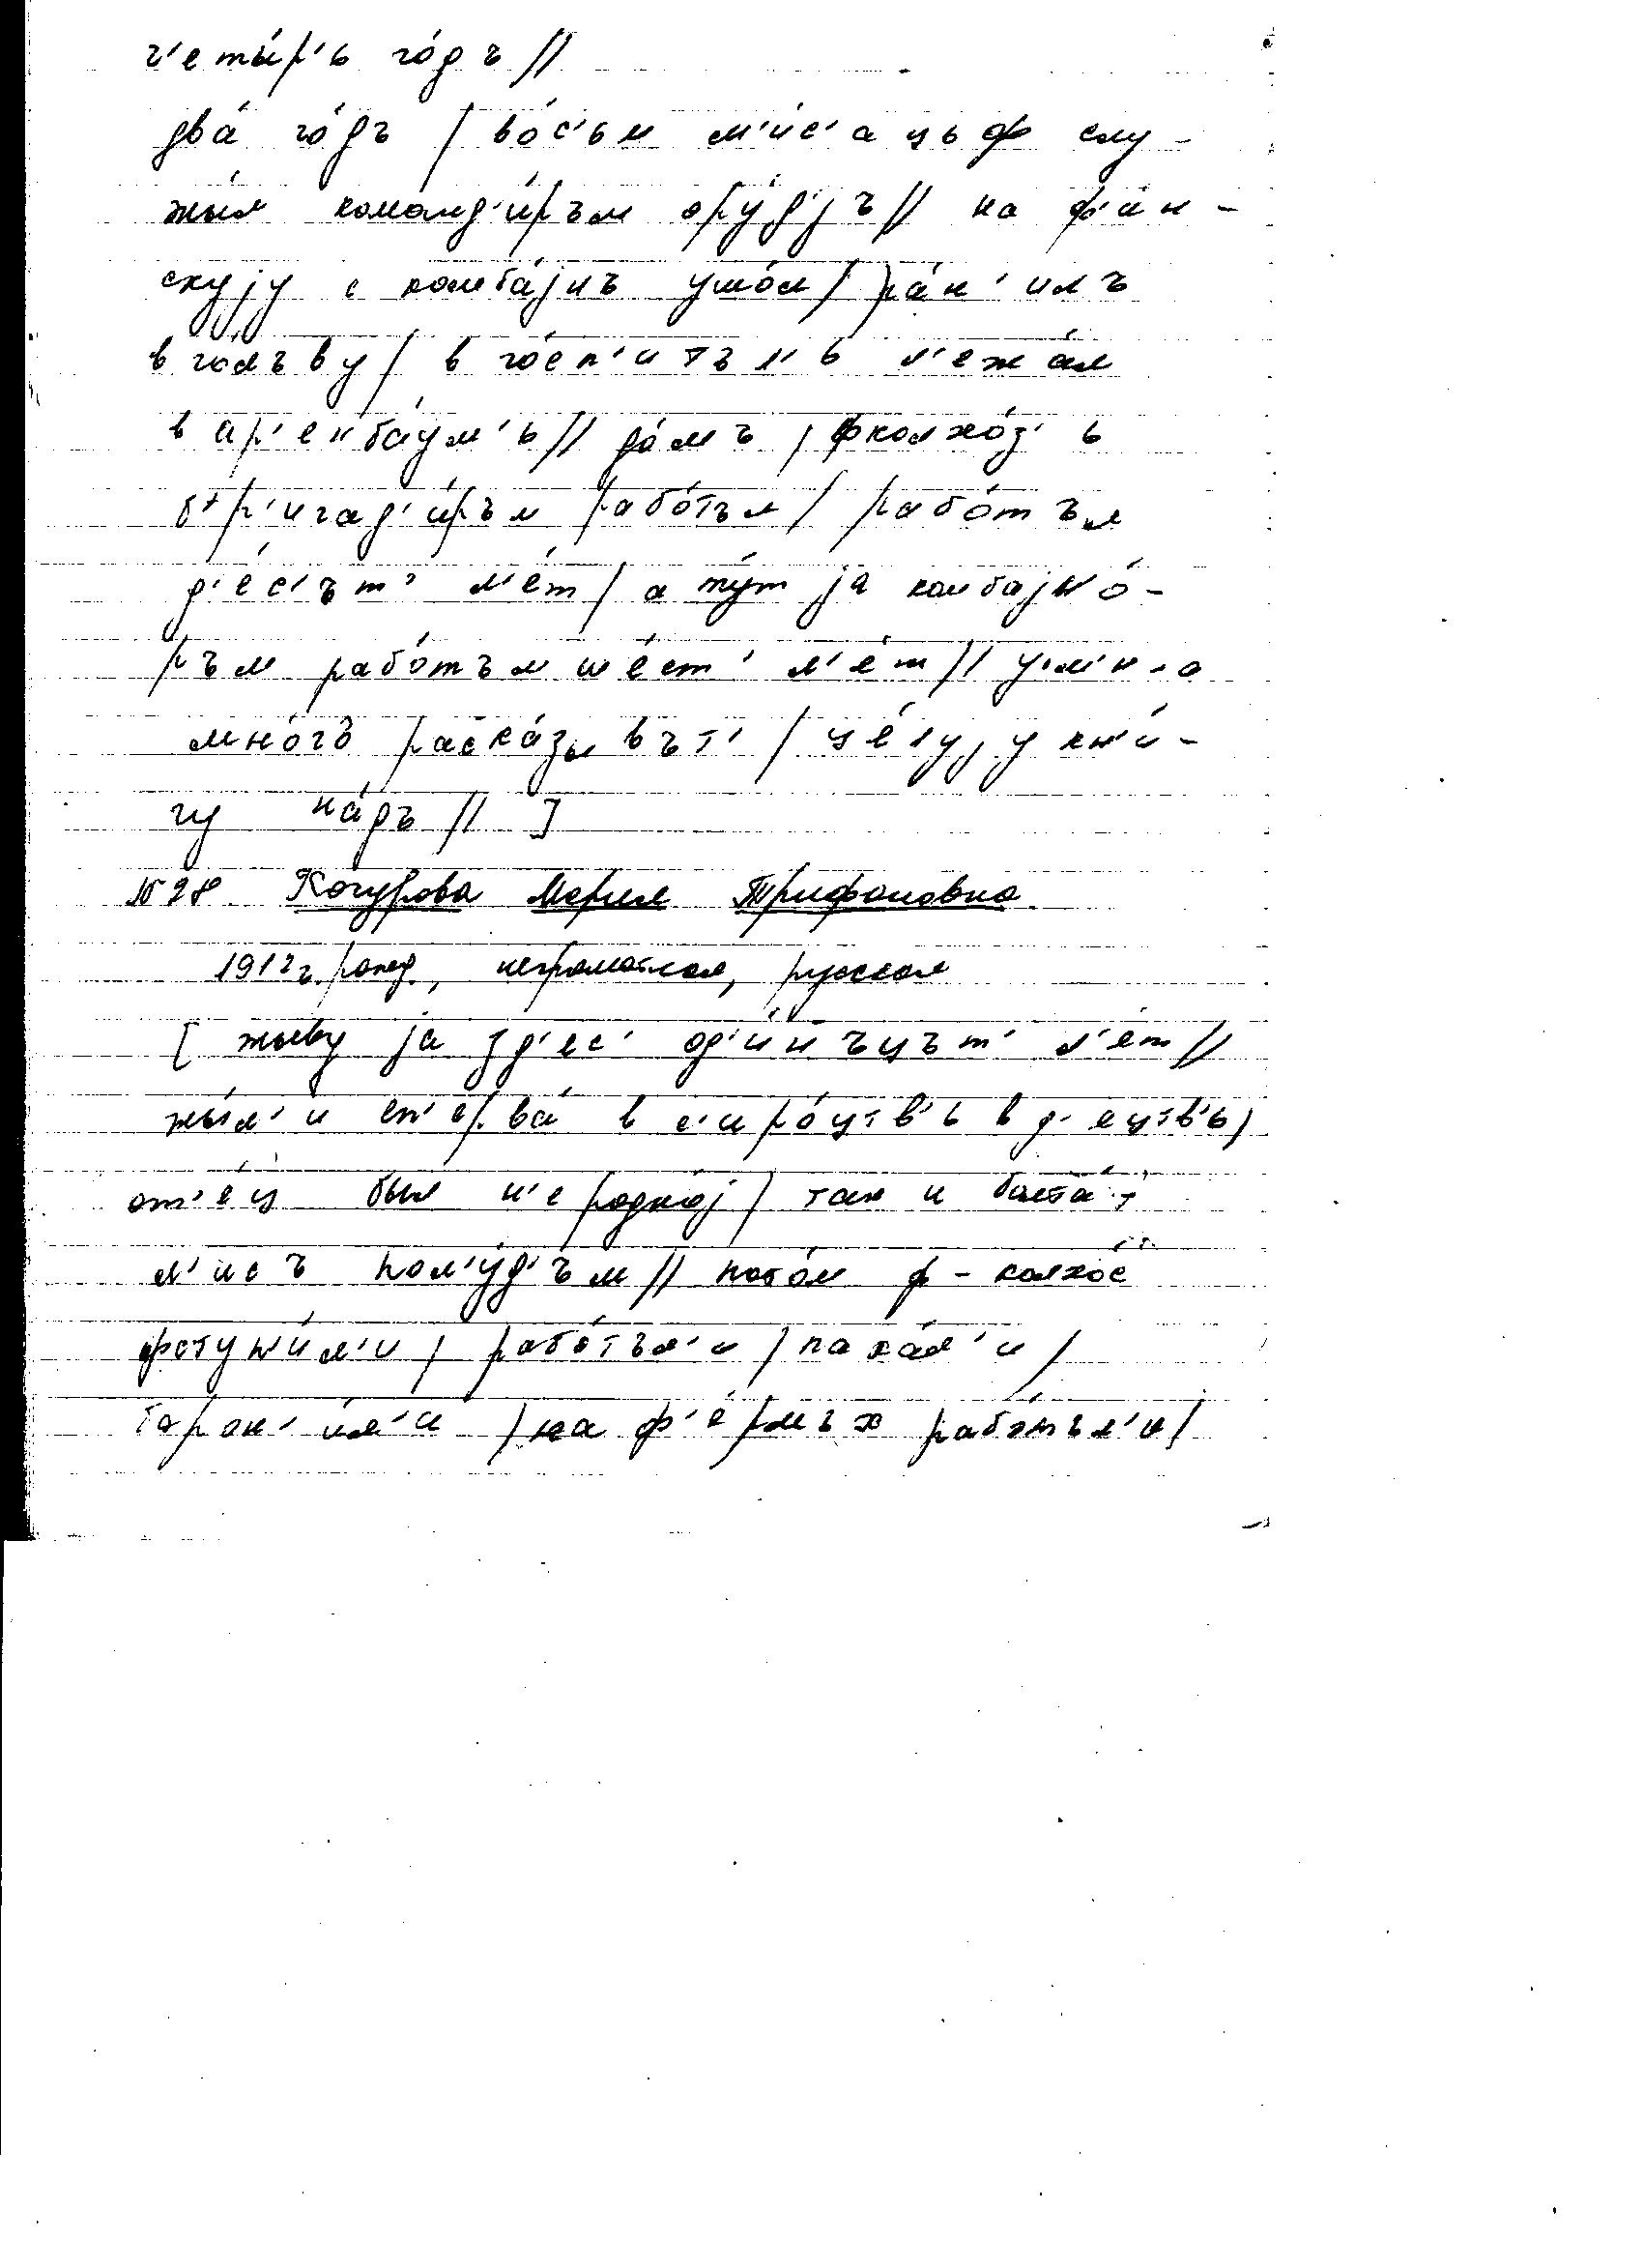 ч'еты́р'ь го́дъ //
два́ го́дъ / во́с'ьм м'и́с'ацьф слу-
жы́л команд'и́ръм ору́д'jъ // на ф'и́н-
скуjу с комба́jнъ ушо́л / ра́н'илъ
в го́лъву / в го́сп'итъл'ь л'ежа́л
в ар'енба́ум'ь // до́мъ / фколхо́з'ь
бр'игад'и́ръм рабо́тъл / рабо́тъл
д'е́с'ът' л'е́т / а ту́т jа комбаjно́-
ръм рабо́тъл ше́ст' л'е́т // у м'ин'а
мно́гъ раска́зывът' / це́луjу кн'и́-
гу на́дъ // ]
№28 Кочурова Мария Трифоновна
1912 г. рожд., неграмотная, русская
[ жыву jа зд'ес' од'и́нъцът' л'е́т //
жы́л'и сп'ерва́ в с'иро́цтв'ь в д'ецтв'ь /
от'е́ц был н'е родно́j / так и болта́-
л'ис'ъ пол'у́д'ъм // пото́м ф-колхо́с
фступи́л'и / рабо́тъл'и / паха́л'и /
борон'и́л'и / на ф'е́рмъх рабо́тъл'и /